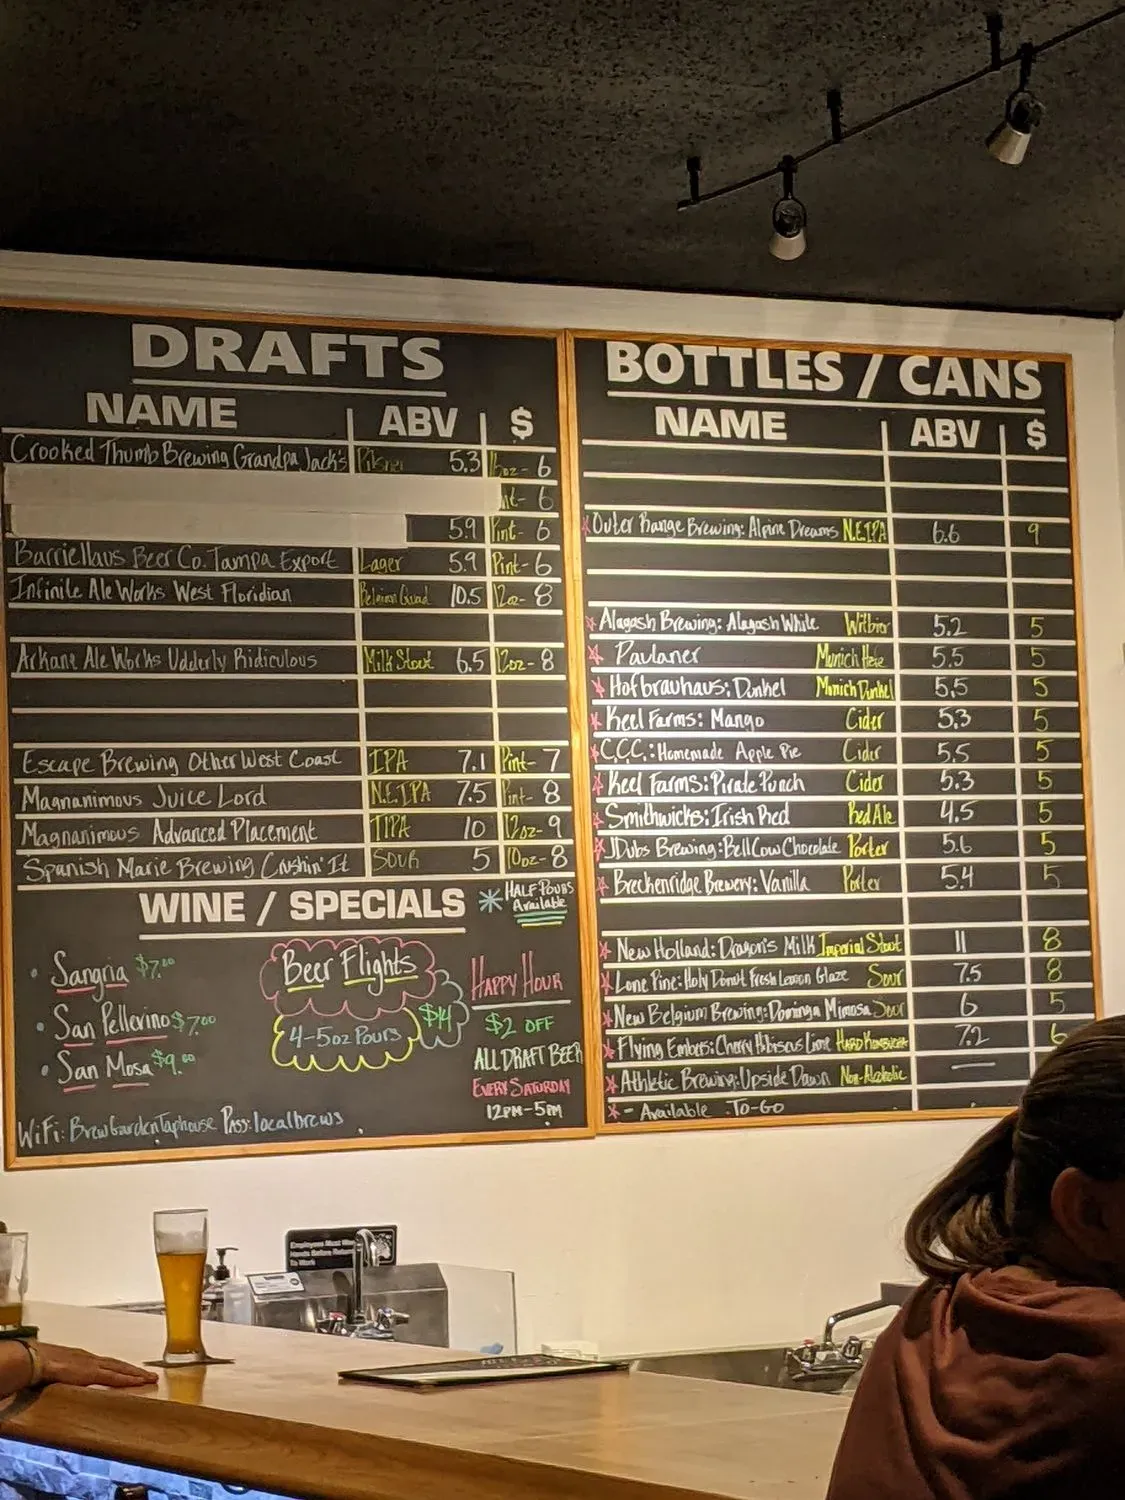 DRAFTS
NAME ABV $
Crooked Thumb Brewing Grandpa Jack's Pilsner 5.3 16oz- 6
nt- 6
5.9 Pint- 6
Barriehaus Beer Co. Tampa Export Lager 5.9 Pint- 6
Infinite Ale Works West Floridian Belgian Quad 10.5 12oz- 8
Arkane Ale Works Udderly Ridiculous Milk Stout 6.5 12oz- 8
Escape Brewing Other West Coast IPA 7.1 Pint- 7
Magnanimous Juice Lord N.E.IPA 7.5 Pint- 8
Magnanimous Advanced Placement TIPA 10 12oz- 9
Spanish Marie Brewing Crushin' It SOUR 5 10oz- 8
WINE / SPECIALS
* HALF POURS
Available
• Sangria $7.00
• San Pellerino $7.00
• San Mosa $9.00
Beer Flights
4-5oz Pours
$14
HAPPY HOUR
$2 OFF
ALL DRAFT BEER
EVERY SATURDAY
12PM-5PM
WiFi: BrewGardenTaphouse Pass: localbrews
BOTTLES / CANS
NAME ABV $
Outer Range Brewing: Alpine Dreams N.E.IPA 6.6 9
Alagash Brewing: Alagash White Witbier 5.2 5
Paulaner Munich Hefe 5.5 5
Hofbrauhaus: Dunkel Munich Dunkel 5.5 5
Keel Farms: Mango Cider 5.3 5
C.C.C.: Homemade Apple Pie Cider 5.5 5
Keel Farms: Pirate Punch Cider 5.3 5
Smithwicks: Irish Red Red Ale 4.5 5
JDubs Brewing: Bell Cow Chocolate Porter 5.6 5
Breckenridge Brewery: Vanilla Porter 5.4 5
New Holland: Dragon's Milk Imperial Stout 11 8
Lone Pine: Holy Donut Fresh Lemon Glaze Sour 7.5 8
New Belgium Brewing: Dominga Mimosa Sour 6 5
Flying Embers: Cherry Hibiscus Lime HARD KOMBUCHA 7.2 6
Athletic Brewing: Upside Dawn Non-Alcoholic —
☆ - Available To-Go
Employees Must
Hands Before
To Work